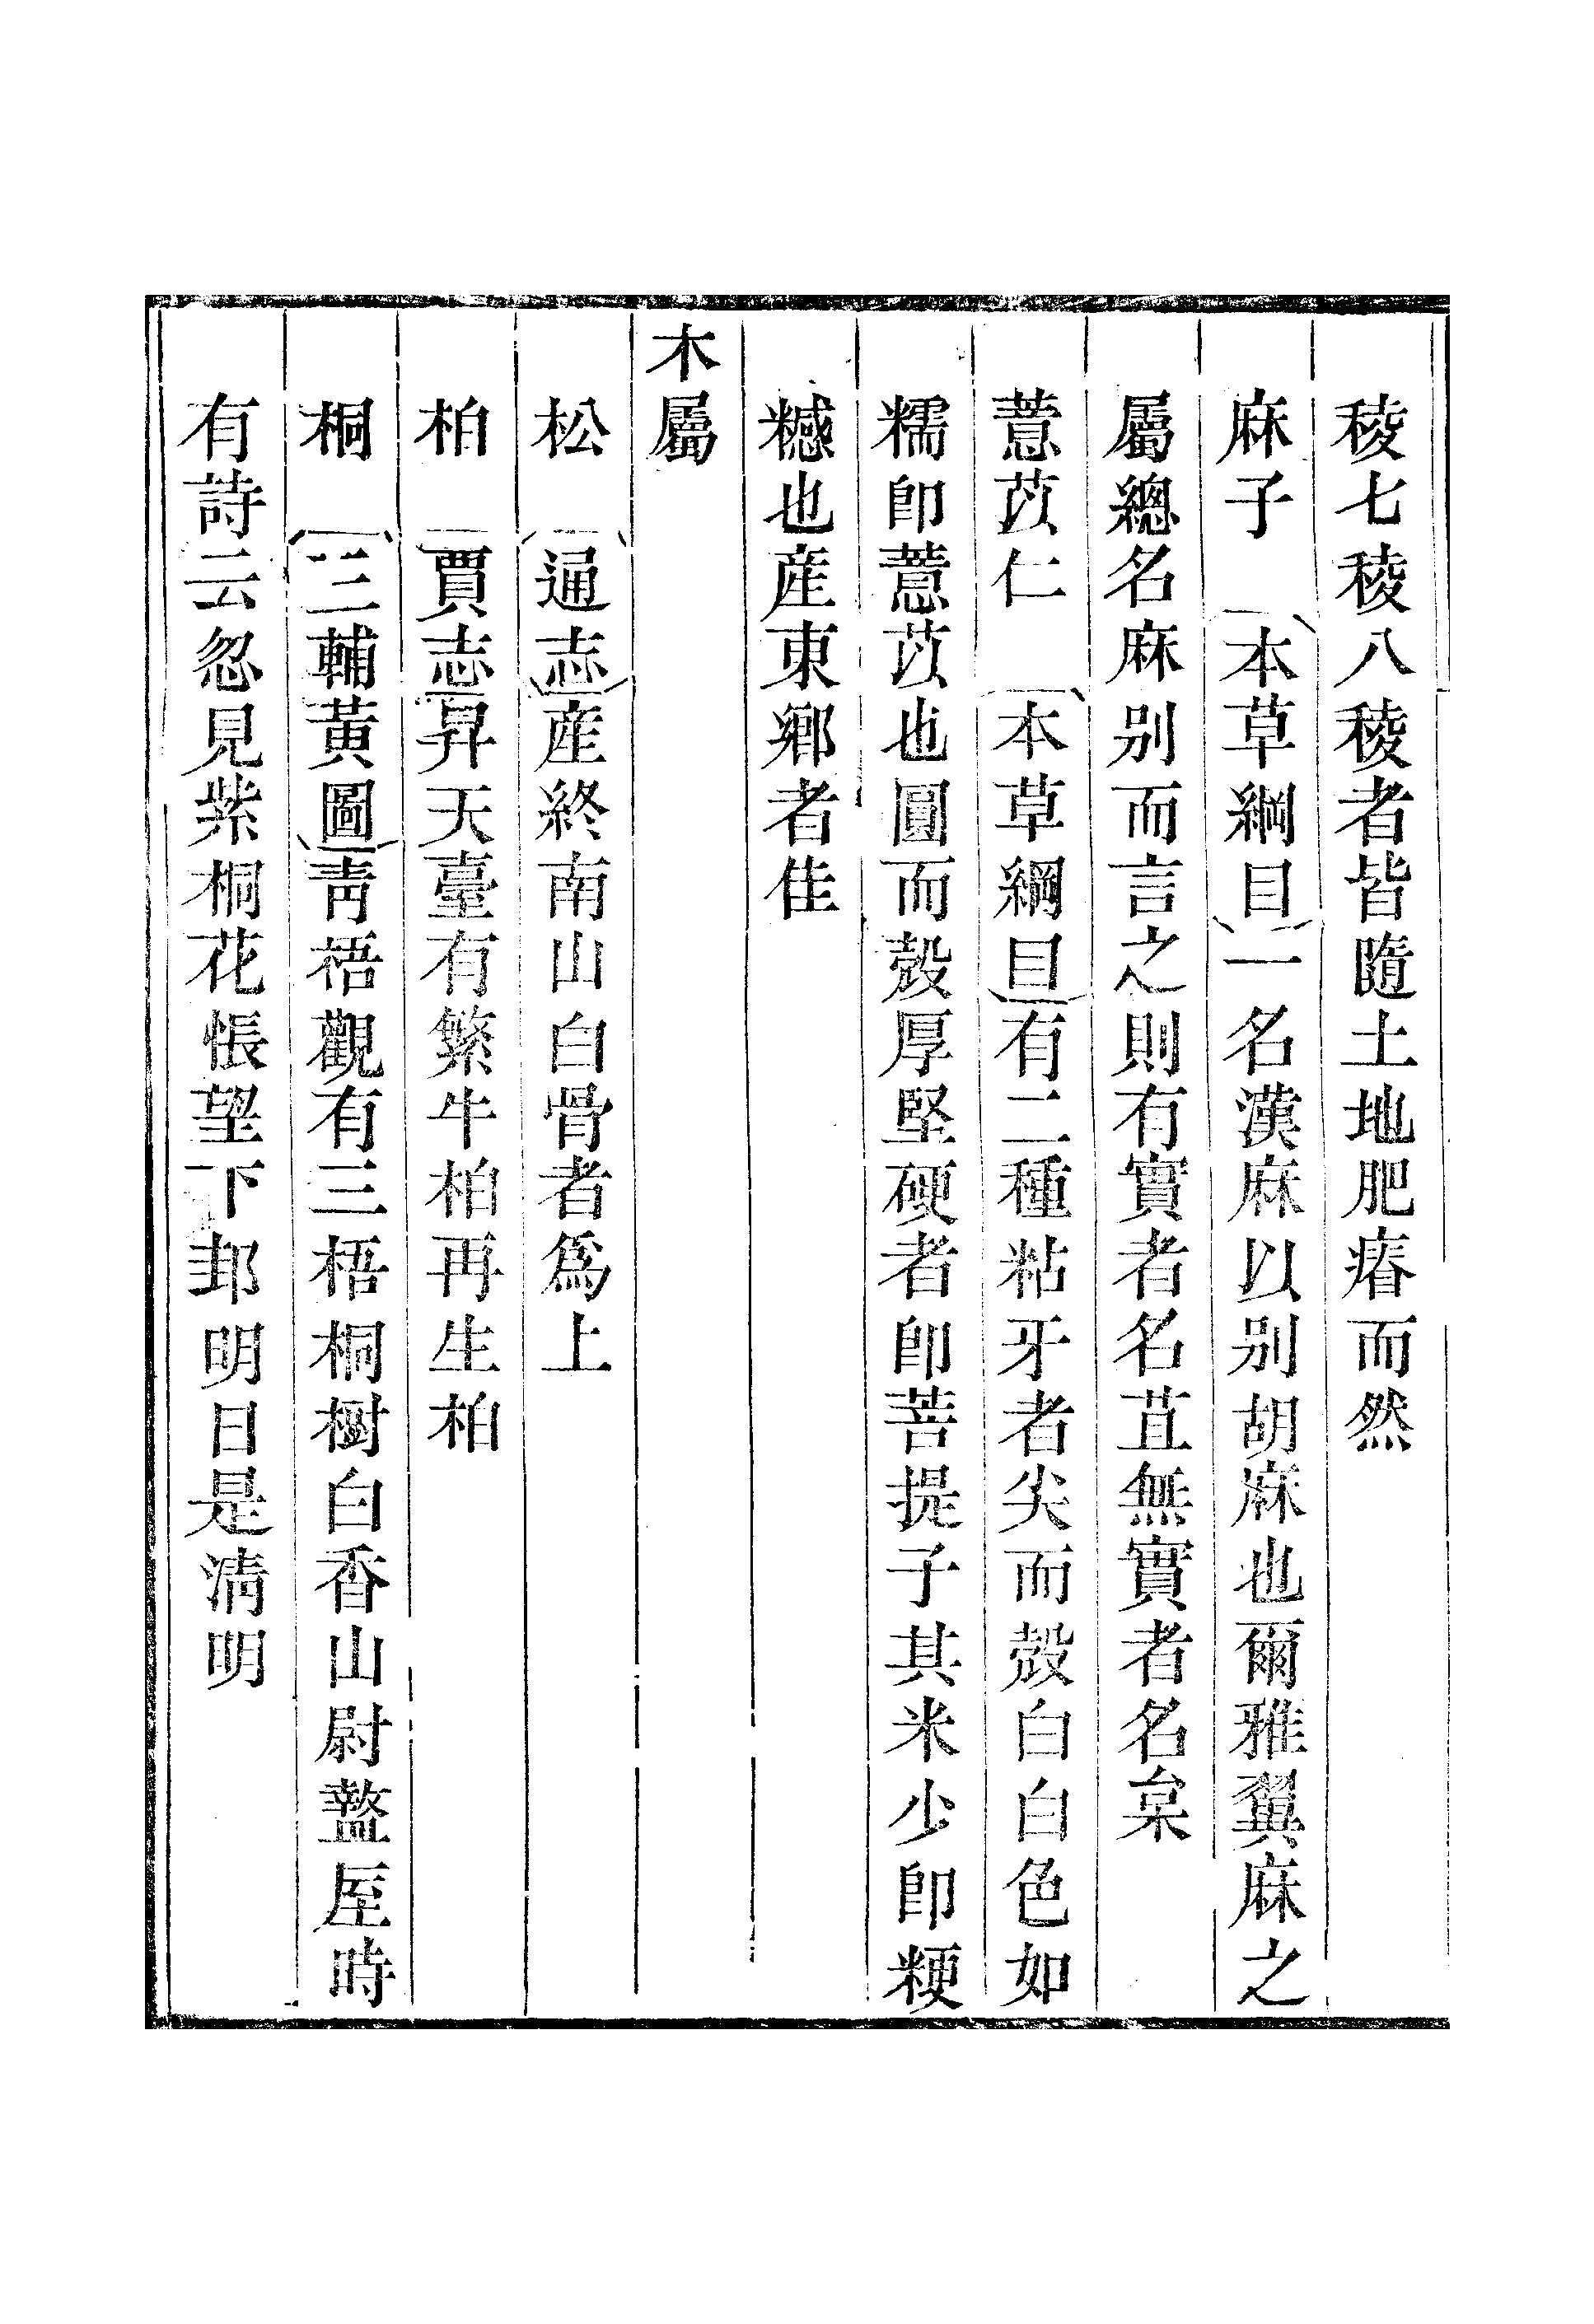 稜七稜八稜者皆隨土地肥瘠而然
麻子 本草綱目一名漢麻以别胡麻也爾雅翼麻之
屬總名麻别而言之則有實者名苴無實者名枲
薏苡仁 本草綱目有二種粘牙者尖而殼白白色如
糯卽薏苡也圓而殼厚堅硬者卽菩提子其米少卽粳
𥽇也産東鄉者佳
木屬
松 通志産終南山白骨者爲上
柏 賈志昇天臺有繫牛柏再生柏
桐 三輔黃圖靑梧觀有三梧桐樹白香山尉盩厔時
有詩云忽見紫桐花悵望下邽明日是淸明